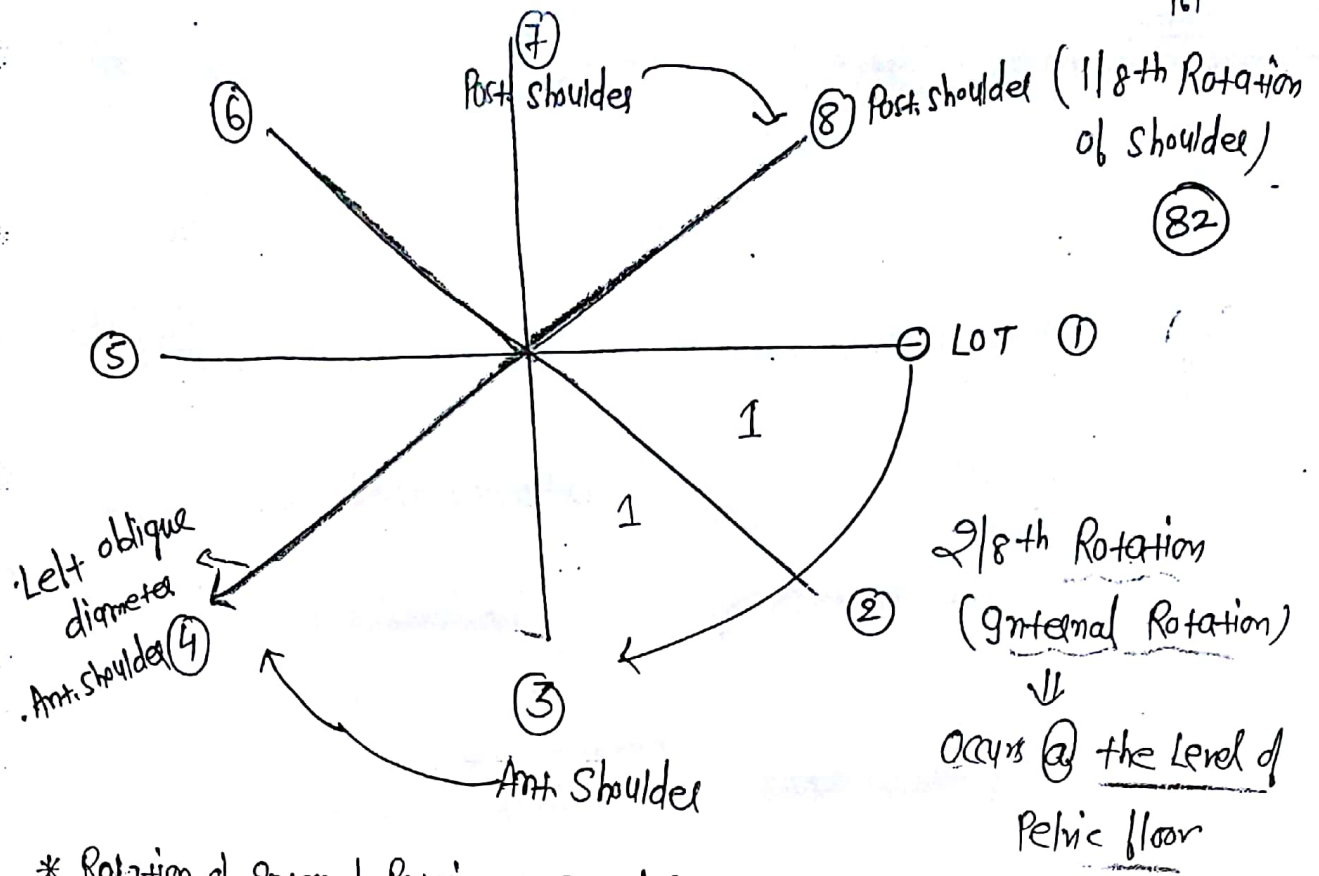 161
7
Post. Shoulder
6
8 Post. Shoulder (1/8th Rotation
of Shoulder)
82
5
LOT 1
1
1
Left oblique
diameter
Ant. Shoulder 4
2
2/8th Rotation
(Internal Rotation)
⇓
3
Occurs @ the Level of
Ant. Shoulder
Pelvic floor
* Rotation of